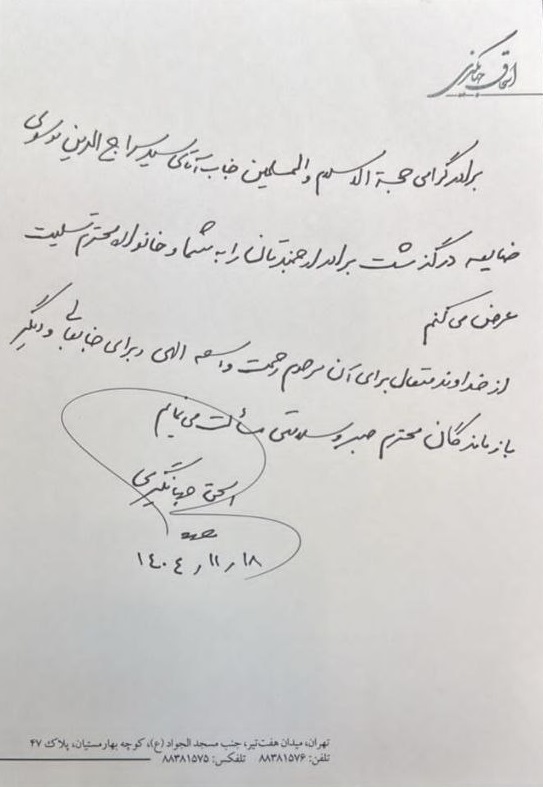 اسحاق جهانگیری
برادر گرامی حجة الاسلام والمسلمین جناب آقای سید سراج الدین موسوی
ضایعه درگذشت برادر ارجمندتان را به شما و خانواده محترم تسلیت
عرض می کنم
از خداوند متعال برای آن مرحوم رحمت واسعه الهی و برای جنابعالی و دیگر
بازماندگان محترم صبر و سلامتی مسألت می نمایم
اسحق جهانگیری
۱۴۰۴/۱۱/۱۸
تهران، میدان هفت‌تیر، جنب مسجد الجواد (ع)، کوچه بهارمستیان، پلاک ۴۷
تلفن: ۸۸۳۸۱۵۷۶ تلفکس: ۸۸۳۸۱۵۷۵